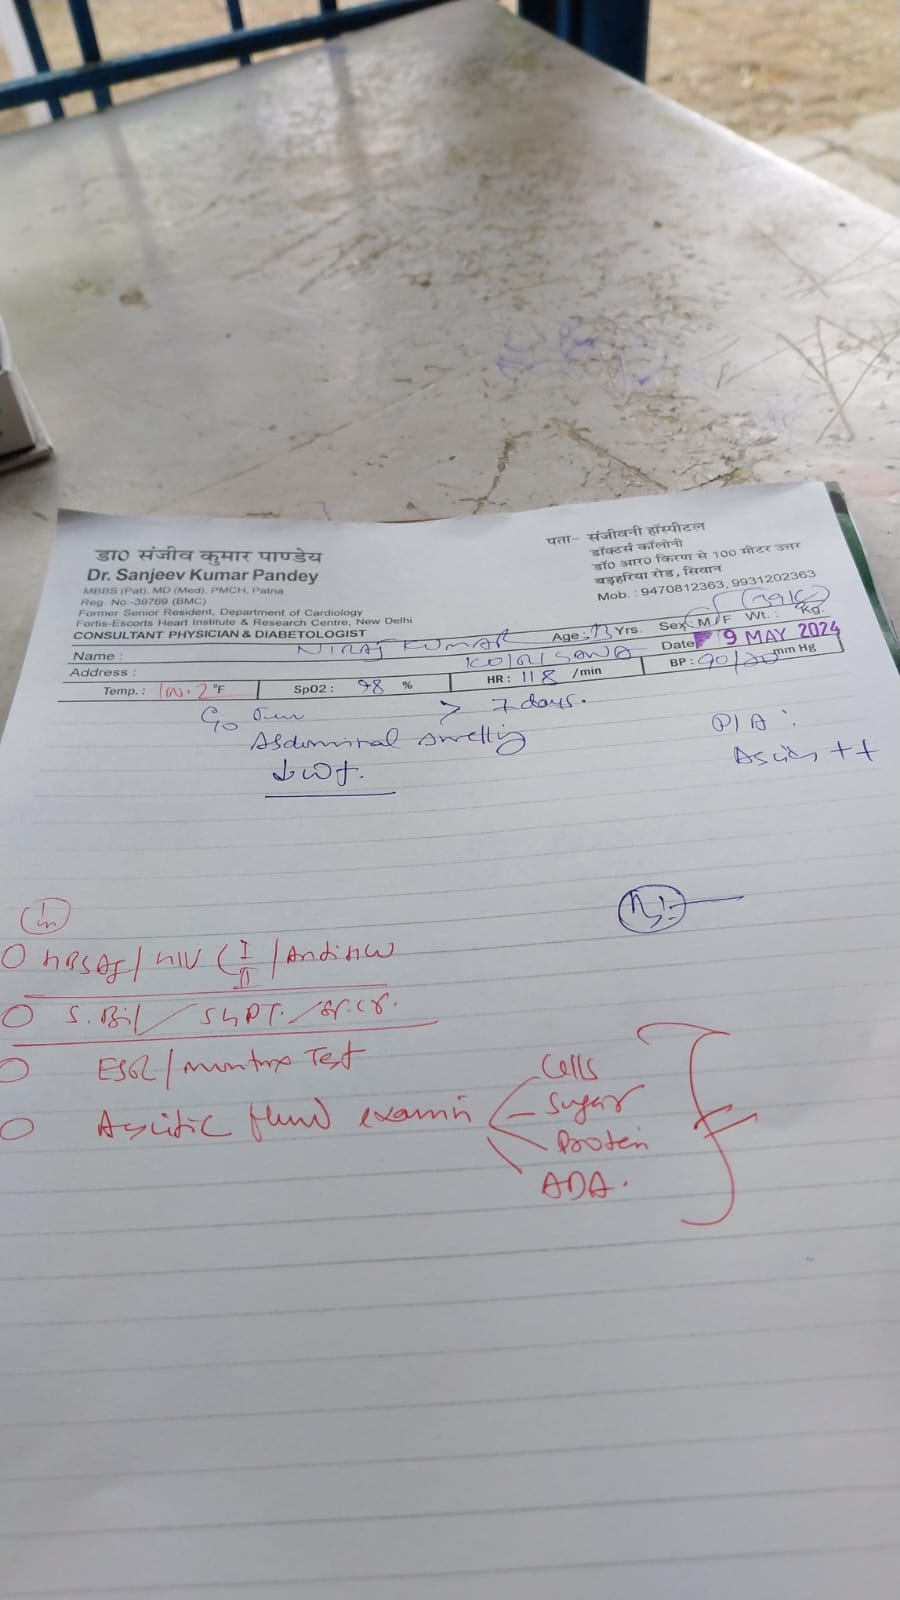 डा० संजीव कुमार पाण्डेय
Dr. Sanjeev Kumar Pandey
MBBS (Pat), MD (Med), PMCH, Patna
Reg. No.-39769 (BMC)
Former Senior Resident, Department of Cardiology
Fortis-Escorts Heart Institute & Research Centre, New Delhi
CONSULTANT PHYSICIAN & DIABETOLOGIST
पता- संजीवनी हॉस्पीटल
डॉक्टर्स कॉलोनी
डॉ० आर० किरण से 100 मीटर उत्तर
बड़हरिया रोड, सिवान
Mob. : 9470812363, 9931202363
Name : NIRAJ KUMAR Age : Yrs. Sex M/F Wt. : Kg.
Address : Date 9 MAY 2024
Temp. : °F SpO2 : 98 % HR : 118 /min BP : mm Hg
> 7 days.
Abdominal swelling
↓ wt.
P/A :
Ascites ++
HBSAg / HIV (I/II /
S. Bil / SGPT. / Sr. Cr.
ESR / Test
Ascitic fluid examn
Cells
Sugar
Protein
ADA.